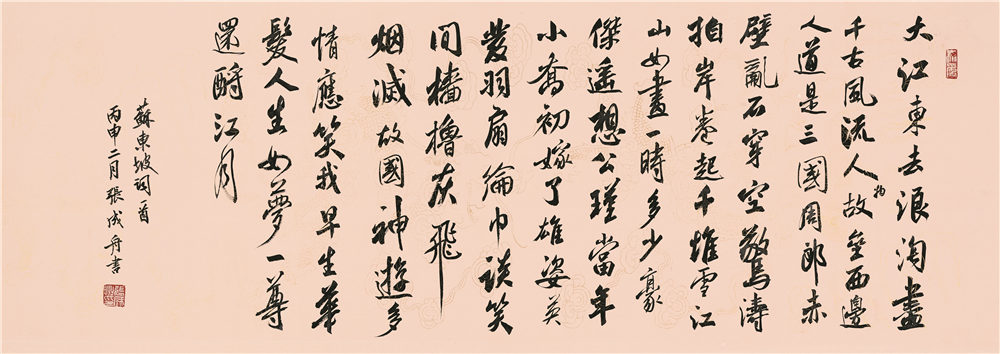 大江東去浪淘盡
千古風流人物故壘西邊
人道是三國周郎赤
壁亂石穿空驚濤
拍岸卷起千堆雪江
山如畫一時多少豪
傑遙想公瑾當年
小喬初嫁了雄姿英
發羽扇綸巾談笑
間檣櫓灰飛
烟滅故國神遊多
情應笑我早生華
髮人生如夢一尊
還酹江月
蘇東坡詞一首
丙申二月張成舟書